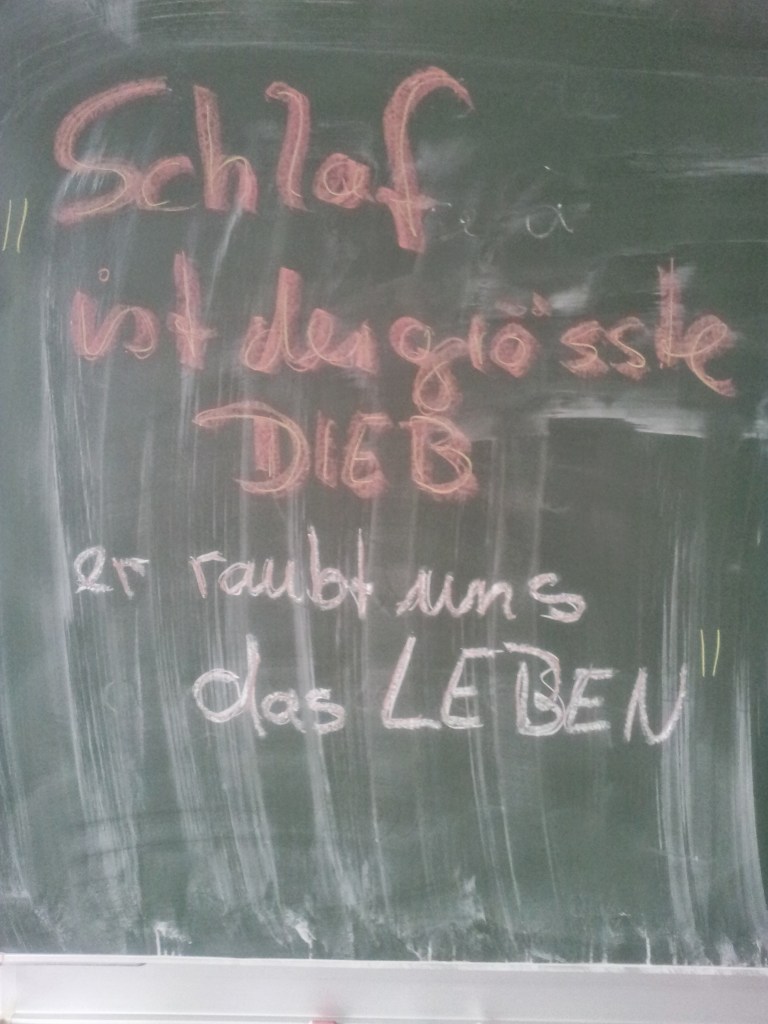 "Schlaf
ist der grösste
DIEB
er raubt uns
das LEBEN"